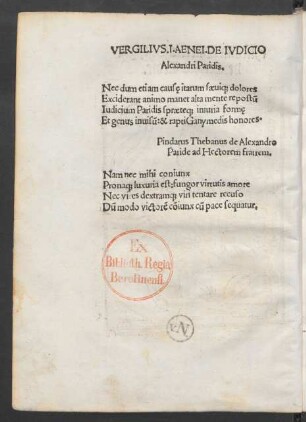 VERGILIVS.I.AENEI.DE IVDICIO
Alexandri Paridis.
Nec dum etiam causę iŗarum sæuiq; dolores
Exciderant animo manet alta mente repostũ
Iudicium Paridis sprætęq; iniuria formę
Et genus inuisũ:& rapti Ganymedis honores.
Pindarus Thebanus de Alexandro
Paride ad Hectorem fratrem.
Nam nec mihi coniunx
Pronaq; luxuria est: fungor uirtutis amore
Nec uires dextramq; uiri tentare recuso
Dũ modo uictorẽ cõiunx cũ pace sequatur,
Ex
Biblioth. Regia
Berolinensi.